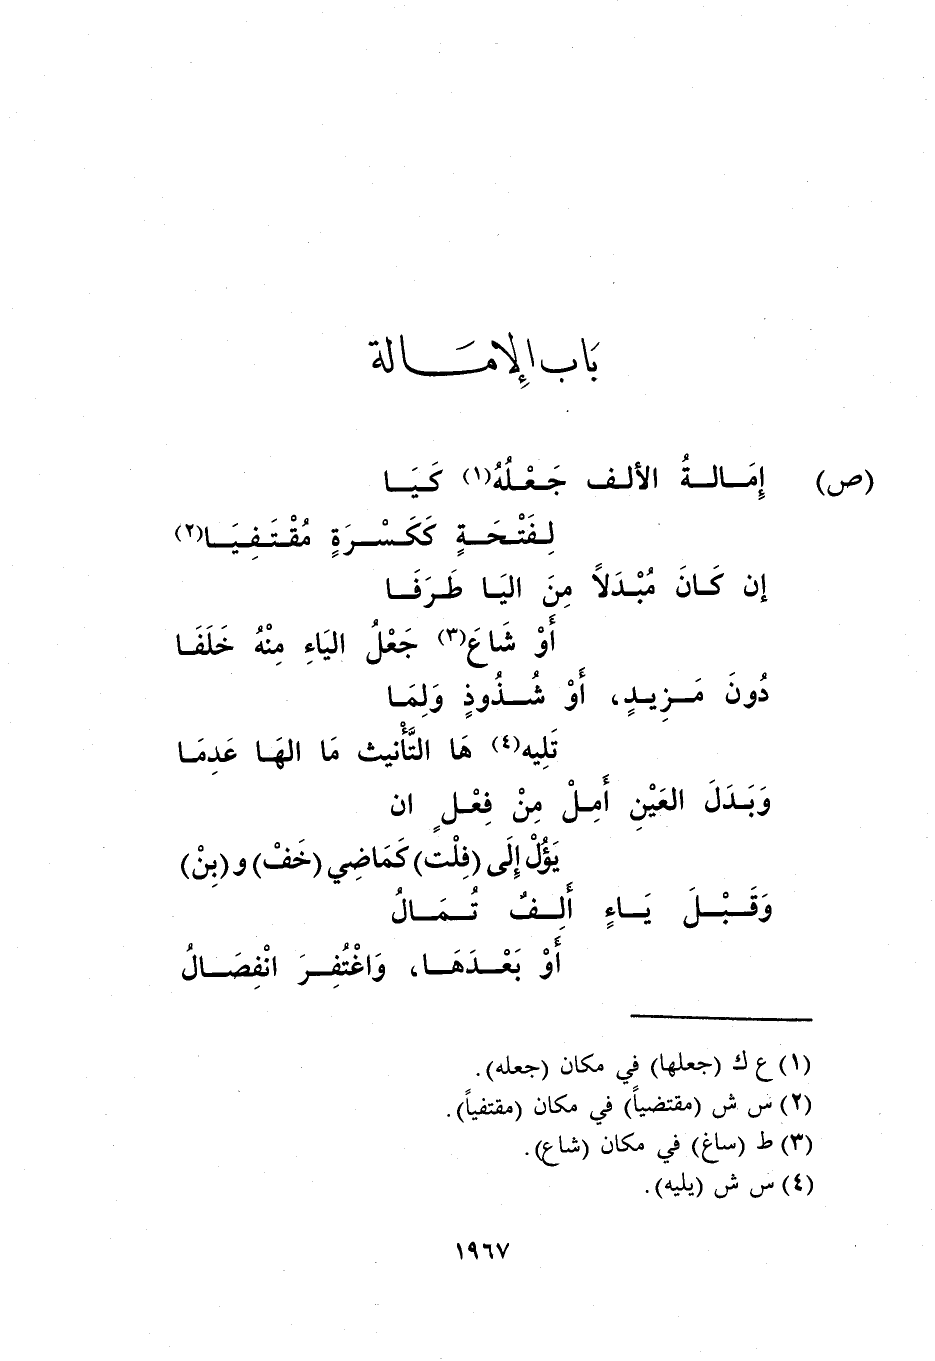 بَاب الإِمَالة
(ص) إِمَالةُ الألف جَعْلُهُ(١) كَيَا
لِفَتْحَةٍ كَكَسْرَةٍ مُقْتَفِيَا(٢)
إن كَانَ مُبْدَلاً مِنَ اليَا طَرَفَا
أَوْ شَاعَ(٣) جَعْلُ اليَاءِ مِنْهُ خَلَفَا
دُونَ مَزِيدٍ، أَوْ شُذُوذٍ وَلِمَا
تَلِيه(٤) هَا التَّأْنيث مَا الهَا عَدِمَا
وَبَدَلَ العَيْنِ أَمِلْ مِنْ فِعْلٍ ان
يَؤُلْ إِلَى (فِلْت) كَمَاضِي (خَفْ) و(بِنْ)
وَقَبْلَ يَاءٍ أَلِفٌ تُمَالُ
أَوْ بَعْدَهَا، وَاغْتُفِرَ انْفِصَالُ
(١) ع ك (جعلها) في مكان (جعله).
(٢) س ش (مقتضياً) في مكان (مقتفياً).
(٣) ط (ساغ) في مكان (شاع).
(٤) س ش (يليه).
١٩٦٧